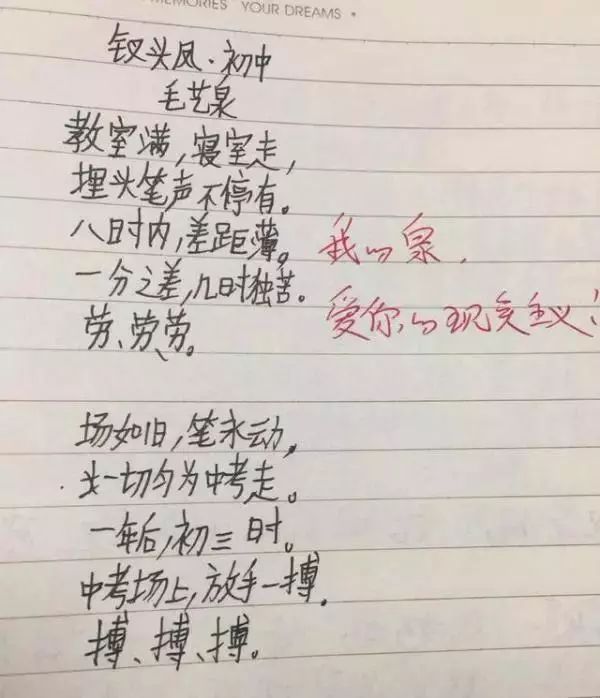 MEMORIES YOUR DREAMS •
钗头凤·初中
毛艺泉
教室满,寝室走,
埋头笔声不停有。
八时内,差距薄。
一分之差,几时独苦。
劳、劳、劳。
我的泉.
爱你的现实主义!
场如旧,笔永动,
一切匀为中考走。
一年后,初三时。
中考场上,放手一搏.
搏、搏、搏。